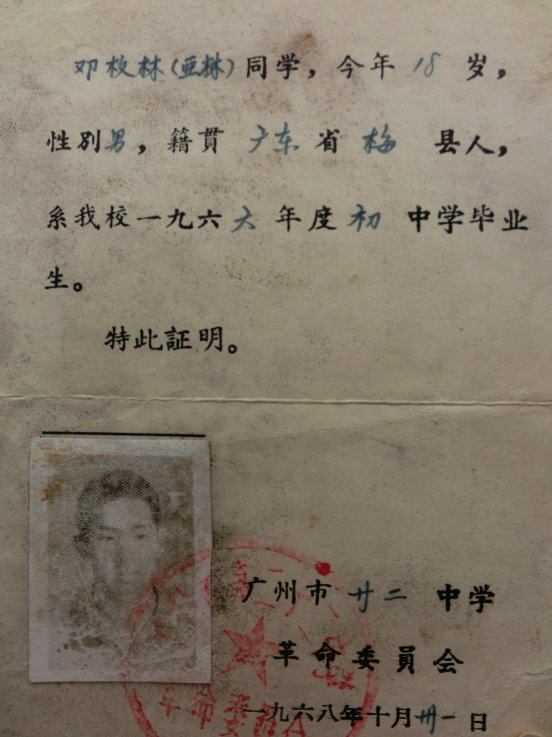 邓枚林(亚林)同学，今年18岁，
性别男，籍贯广东省梅县人，
系我校一九六六年度初中学毕业
生。
特此証明。
广州市廿二中学
革命委員会
一九六八年十月卅一日